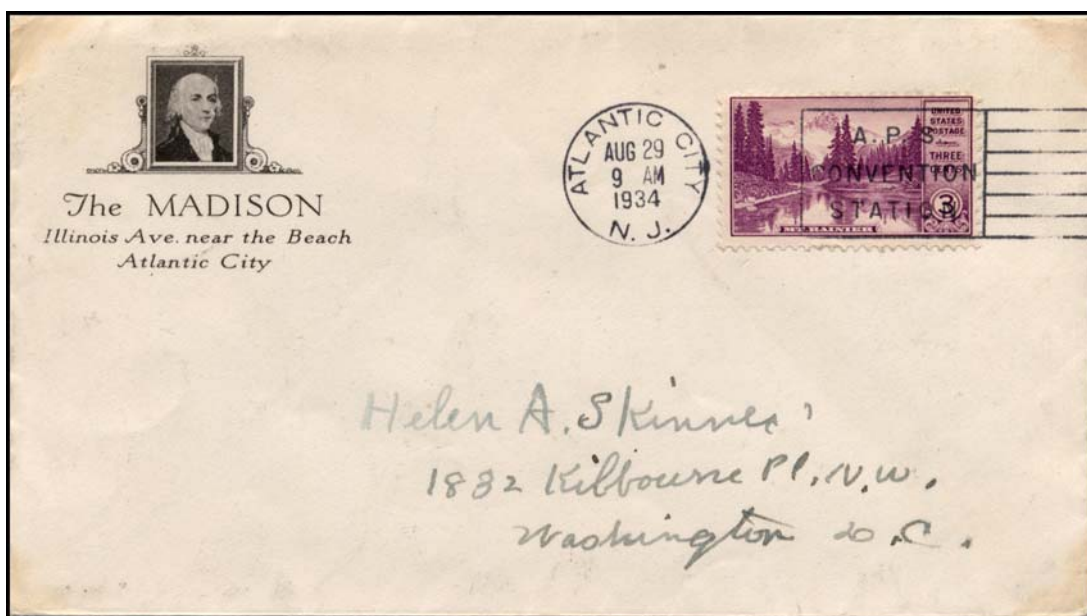 The MADISON
Illinois Ave. near the Beach
Atlantic City
ATLANTIC CITY
AUG 29
9 AM
1934
N. J.
UNITED
STATES
POSTAGE
THREE
CENTS
3
MT. RAINIER
A. P. S.
CONVENTION
STATION
Helen A. Skinner
1832 Kilbourne Pl. N.W.
Washington D.C.